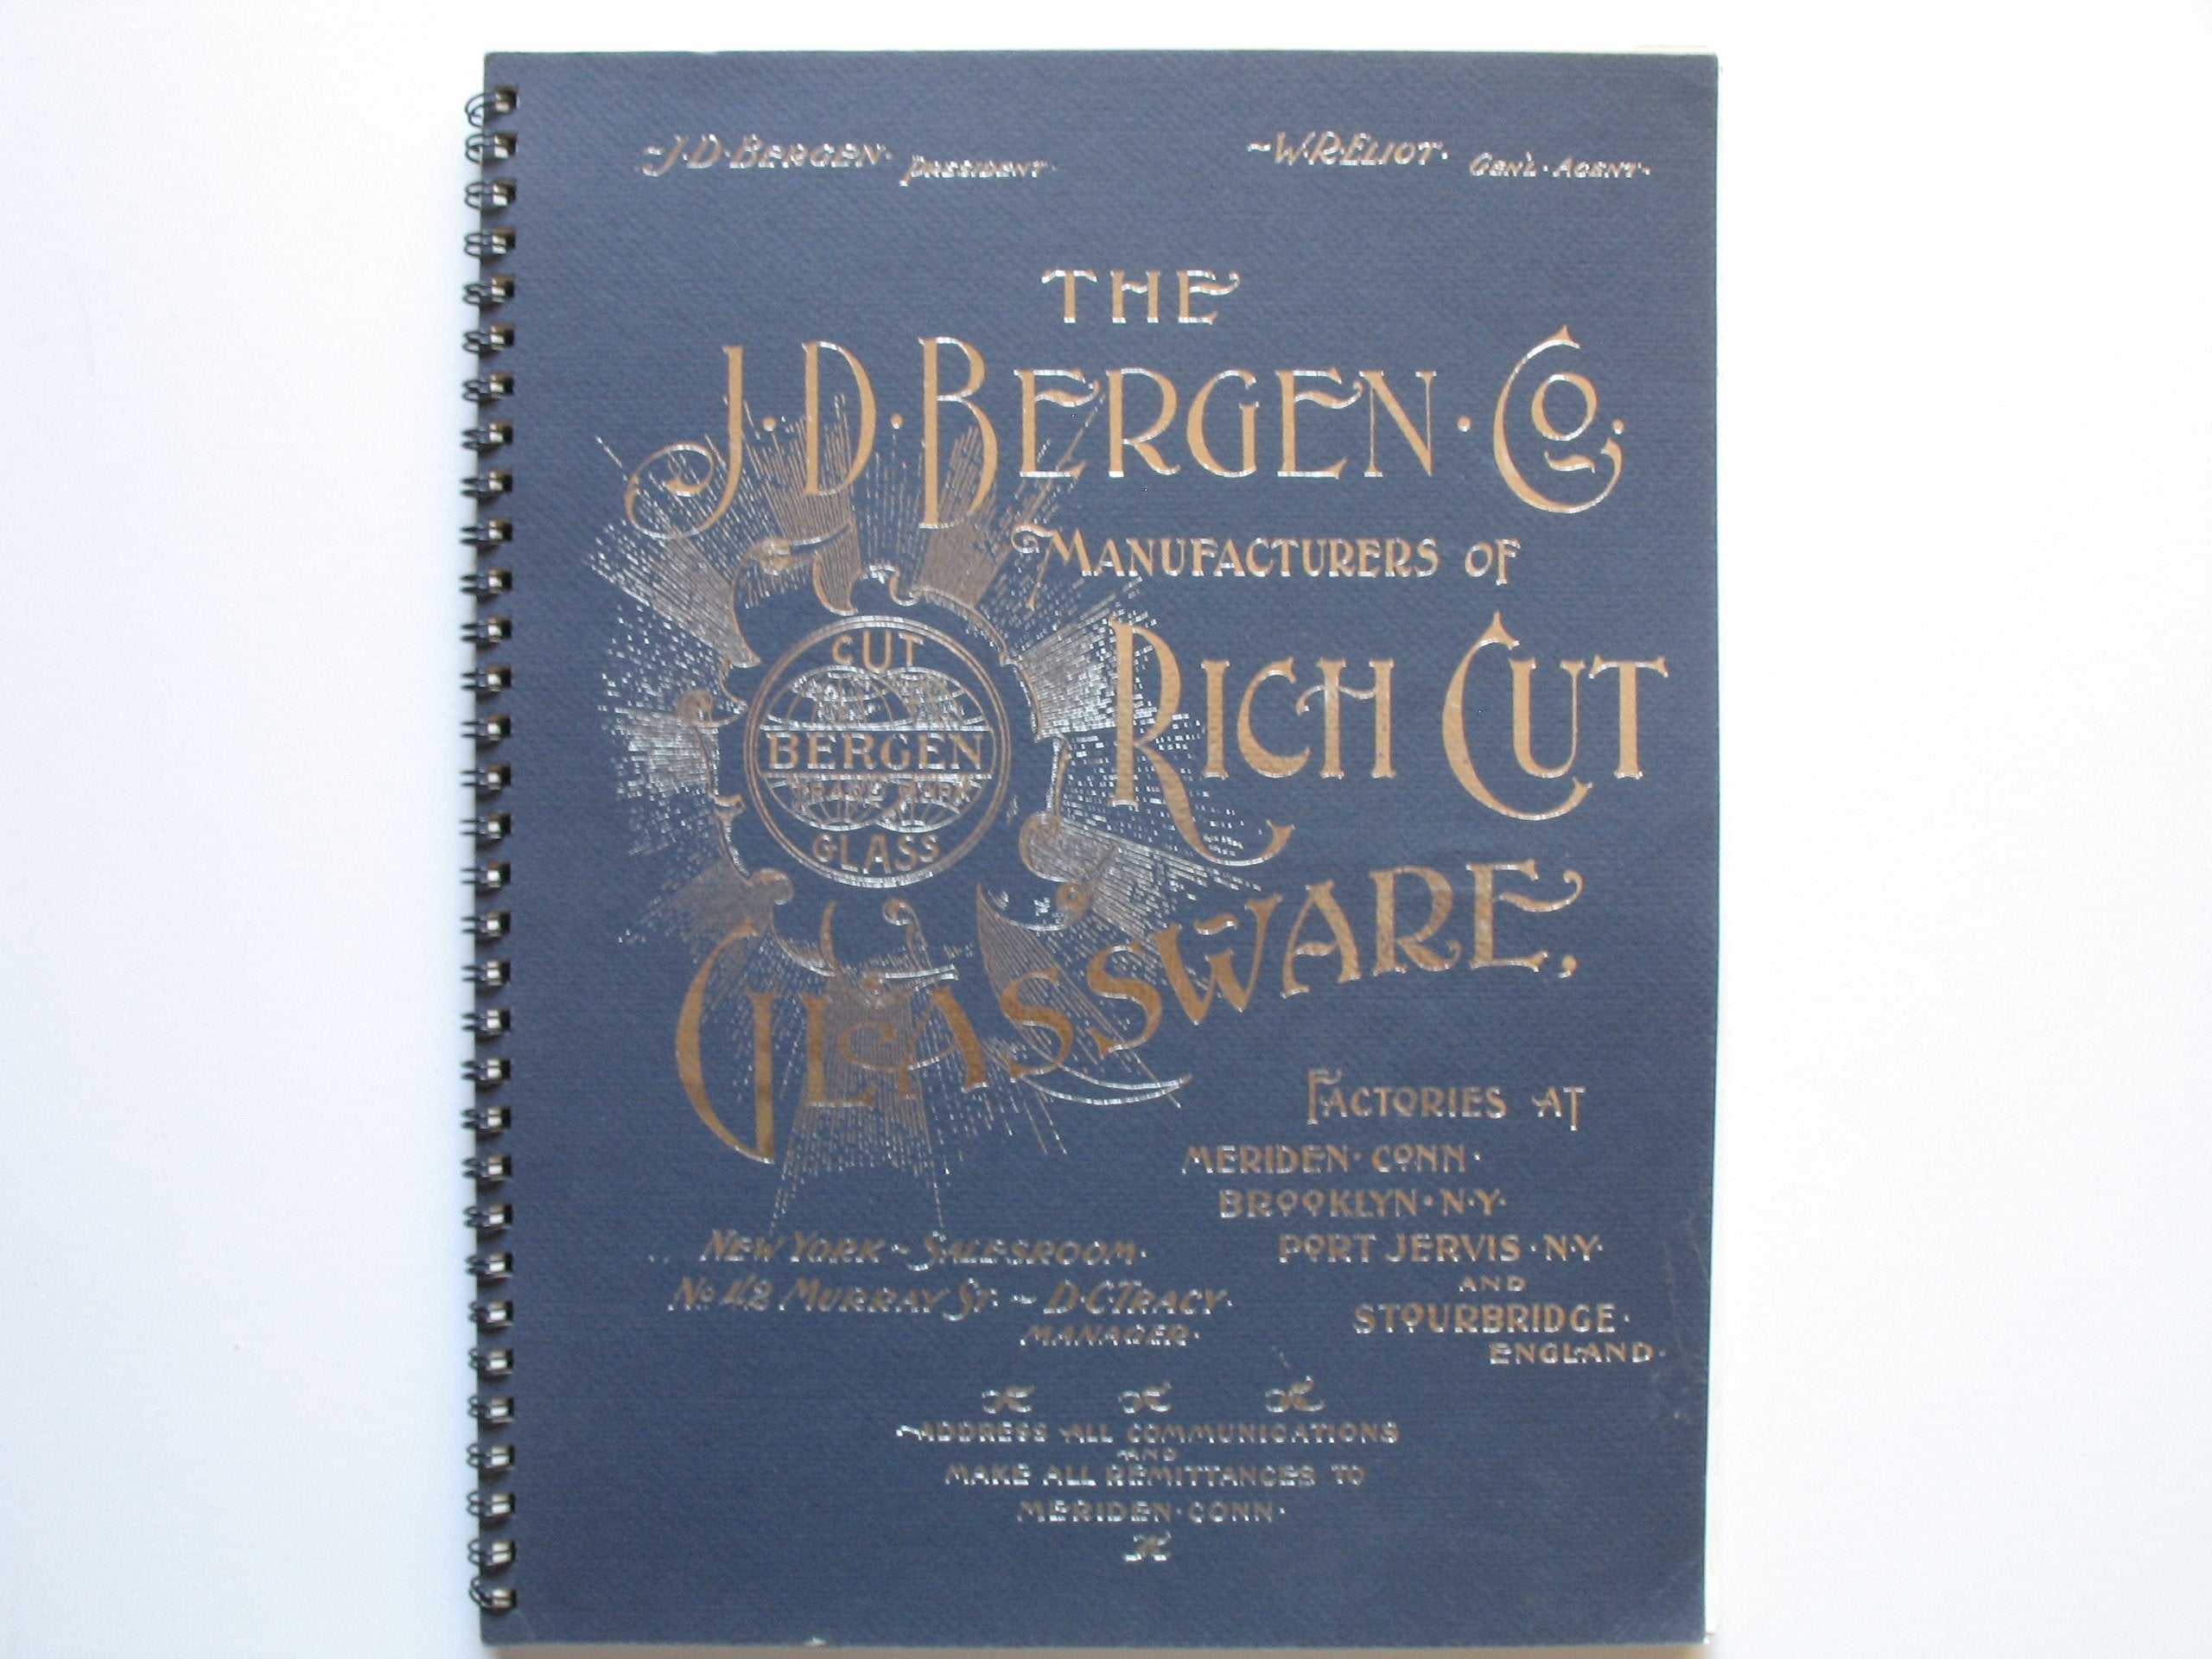 J.D. BERGEN. PRESIDENT.
W.R. ELIOT. GEN'L. AGENT.
THE
J.D. BERGEN. Co.
MANUFACTURERS OF
RICH CUT
GLASSWARE,
CUT
BERGEN
TRADE MARK
GLASS
FACTORIES AT
MERIDEN. CONN.
BROOKLYN. N.Y.
PORT JERVIS. N.Y.
AND
STOURBRIDGE.
ENGLAND.
NEW YORK ~ SALESROOM.
No MURRAY ST. ~ D.C. TRACY.
MANAGER.
ADDRESS ALL COMMUNICATIONS
AND
MAKE ALL REMITTANCES TO
MERIDEN. CONN.